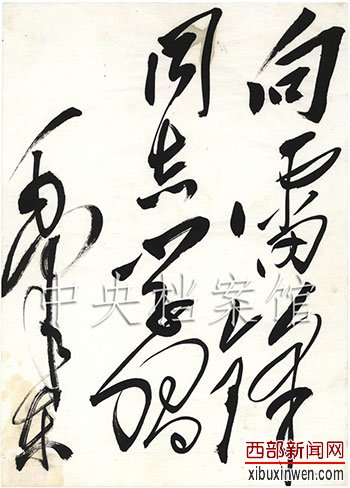 向雷锋
同志学习
毛泽东
中央档案馆
西部新闻网
xibuxinwen.com